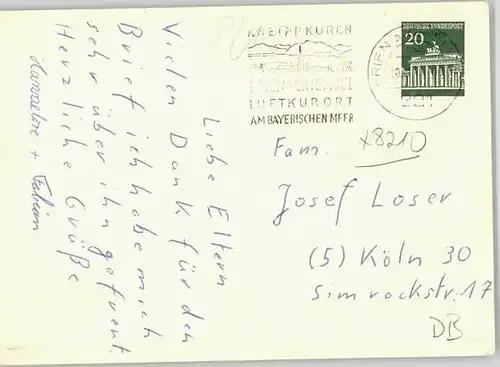 Liebe Eltern
Vielen Dank für den
Brief ich habe mich
sehr über ihn gefreut.
Herzliche Grüße
Hannelore + Fabian
KNEIPPKUREN
LUFTKURORT
AM BAYERISCHEN MEER
DEUTSCHE BUNDESPOST
20
PRIEN
x8210
Fam.
Josef Loser
(5) Köln 30
Simrockstr. 17
DB